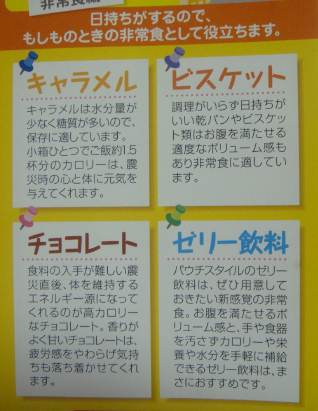 非常食編
日持ちがするので、
もしものときの非常食として役立ちます。
キャラメル
キャラメルは水分量が
少なく糖質が多いので、
保存に適しています。
小箱ひとつでご飯約1.5
杯分のカロリーは、震
災時の心と体に元気を
与えてくれます。
ビスケット
調理がいらず日持ちが
いい乾パンやビスケッ
ト類はお腹を満たせる
適度なボリューム感も
あり非常食に適してい
ます。
チョコレート
食料の入手が難しい震
災直後、体を維持する
エネルギー源になって
くれるのが高カロリー
なチョコレート。香りが
よく甘いチョコレートは、
疲労感をやわらげ気持
ちも落ち着かせてくれ
ます。
ゼリー飲料
パウチスタイルのゼリー
飲料は、ぜひ用意して
おきたい新感覚の非常
食。お腹を満たせるボ
リューム感と、手や食器
を汚さずカロリーや栄
養や水分を手軽に補給
できるゼリー飲料は、ま
さにおすすめです。